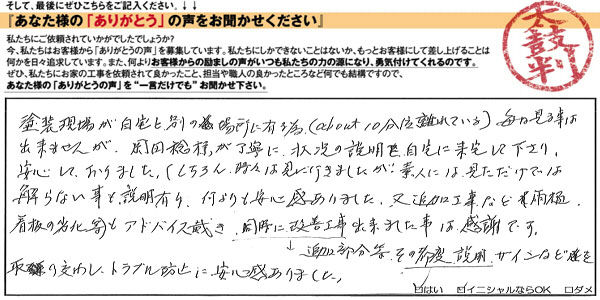 そして、最後にぜひこちらをご記入ください。↓↓
『あなた様の「ありがとう」の声をお聞かせください』
私たちにご依頼されていかがでしたでしょうか？
今、私たちはお客様から「ありがとうの声」を募集しています。私たちにしかできないことはないか、もっとお客様にして差し上げることは
何かを日々追求しています。また、何よりお客様からの励ましの声がいつも私たちの力の源になり、勇気付けてくれるのです。
ぜひ、私たちにお家の工事を依頼されて良かったこと、担当や職人の良かったところなど何でも結構ですので、
あなた様の「ありがとうの声」を“一言だけでも”お聞かせ下さい。
太鼓判
塗装現場が自宅と別の場所に有る為、(about 10分位離れている) 毎日見る事は
出来ませんが、岡田様が丁寧に、状況の説明を自宅に来宅して下さり、
安心しておりました。(もちろん時々は見に行きましたが) 素人には見ただけでは
解らない事も説明有り、何よりも安心感ありました。又追加工事など雨樋、
看板の劣化等もアドバイス戴き、同時に改善工事出来ました事は感謝です。
→追加部分等、その都度説明、サインなど
取り交わし、トラブル防止に安心感ありました。
□はい □イニシャルならOK □ダメ